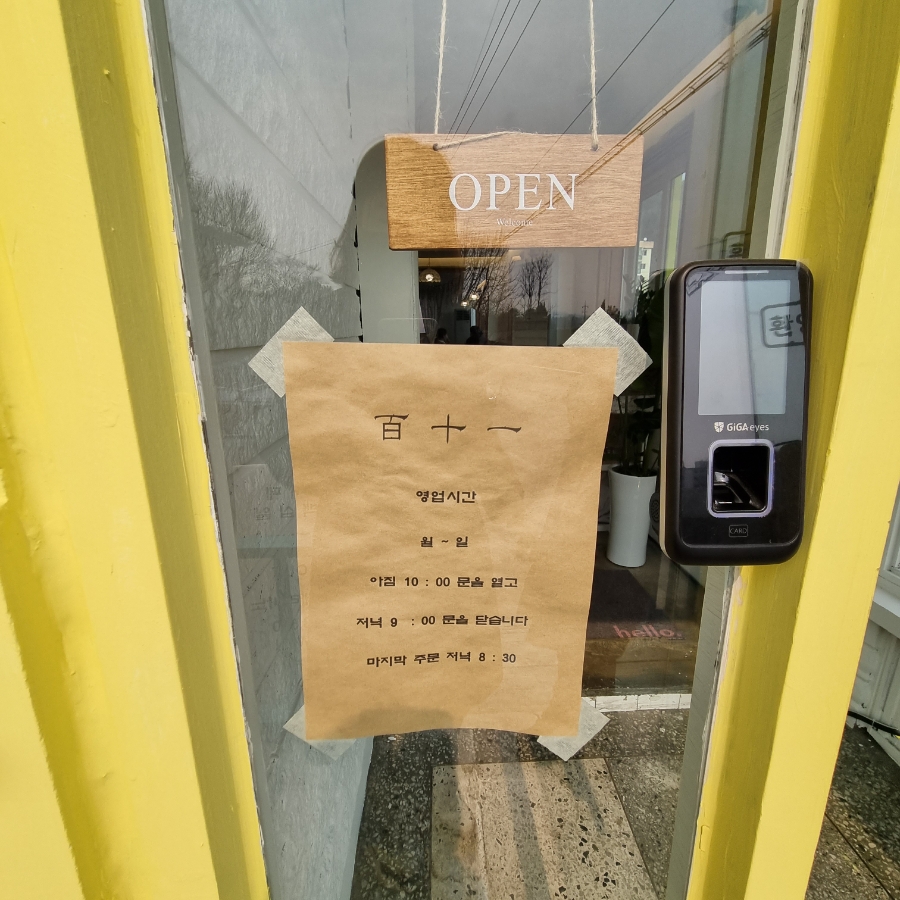 OPEN
Welcome
百十一
영업시간
월 ~ 일
아침 10 : 00 문을 열고
저녁 9 : 00 문을 닫습니다
마지막 주문 저녁 8 : 30
GiGA eyes
CARD
hello.